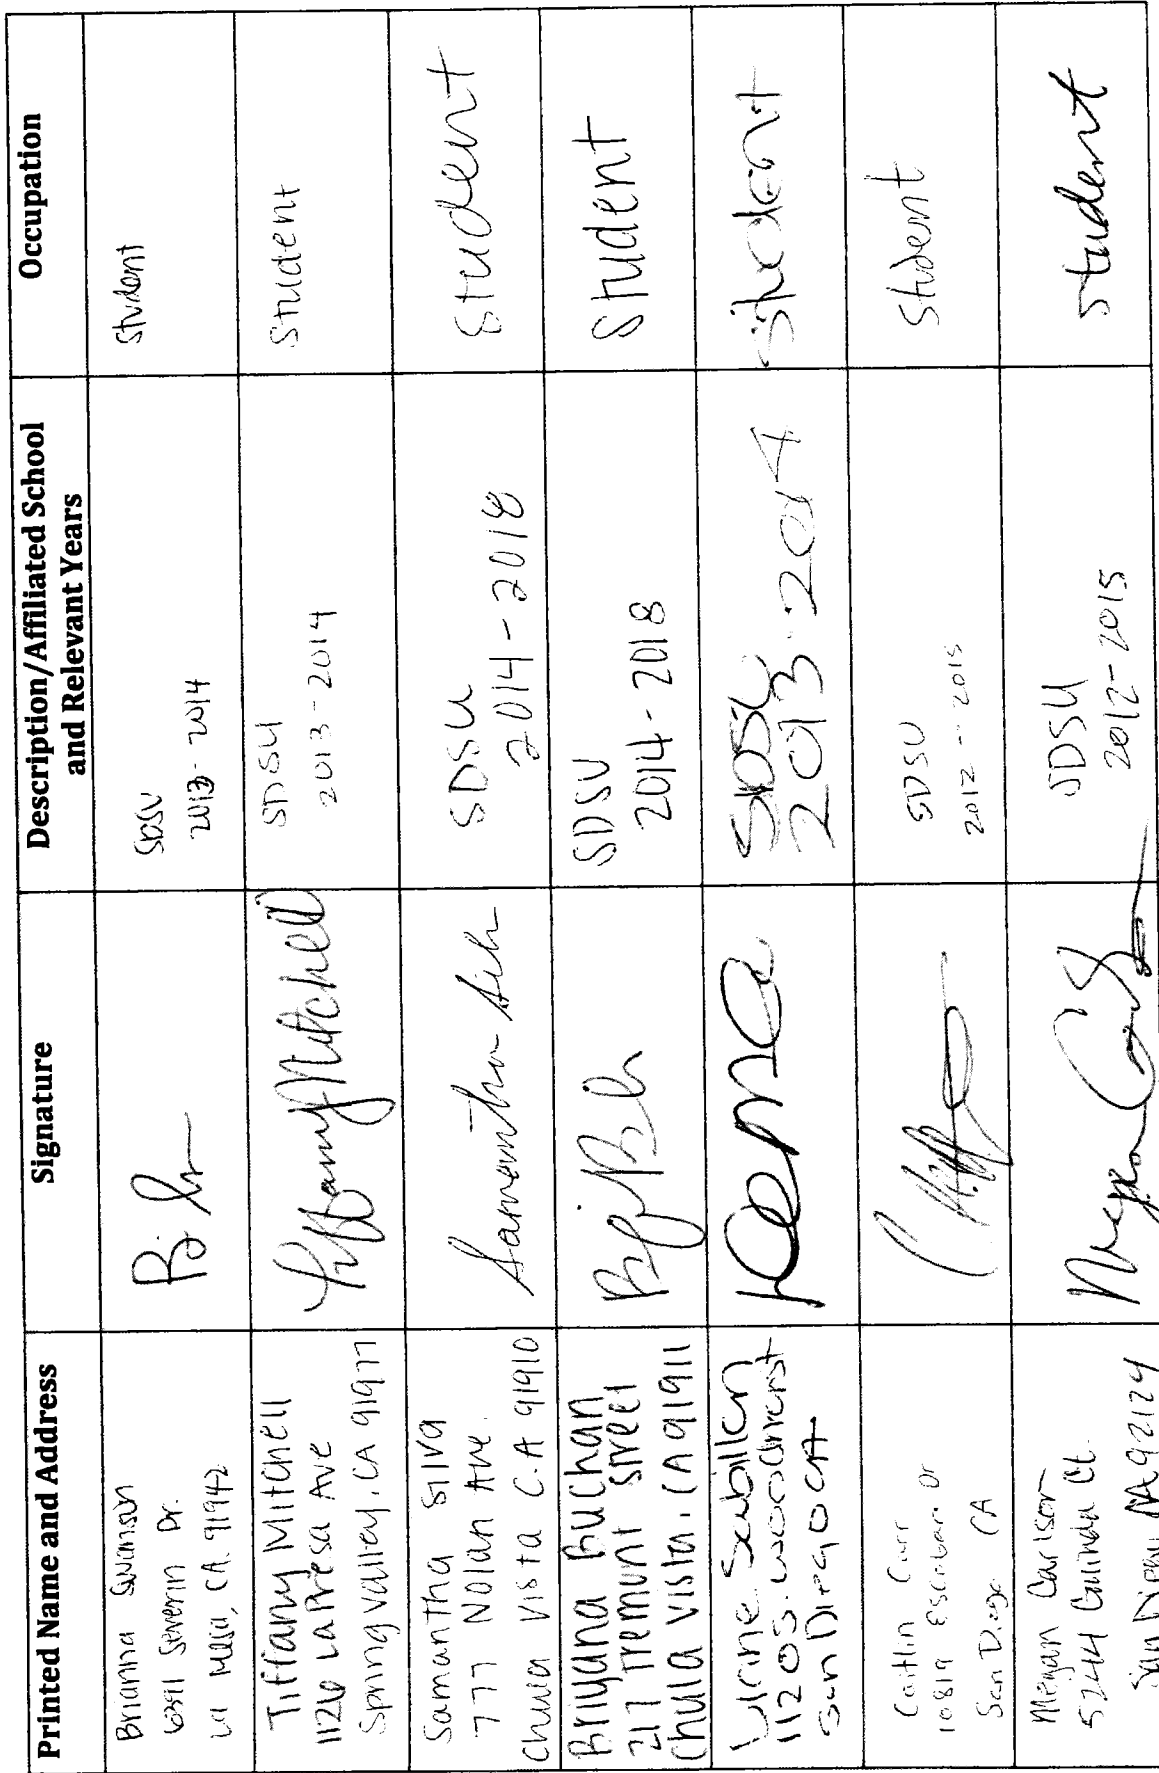 Printed Name and Address
Signature
Description/Affiliated School
and Relevant Years
Occupation
Brianna Swanson
Severin Dr.
La Mesa, CA. 91942
SDSU
2013-2014
Student
Tiffany Mitchell
1126 La Presa Ave
Spring Valley, CA 91977
Tiffany Mitchell
SDSU
2013-2014
Student
Samantha Silva
777 Nolan Ave.
Chula Vista C.A 91910
Samantha
SDSU
2014-2018
Student
Briyana Buchan
217 Tremont Street
Chula Vista, CA 91911
SDSU
2014-2018
Student
11205
San Diego CA
SDSU
2013-2014
Student
Caitlin Carr
10819 Escobar Dr
San Diego CA
SDSU
2012-2015
Student
Megan Carlson
5244 Ct.
San Diego, CA 92124
Megan
SDSU
2012-2015
student